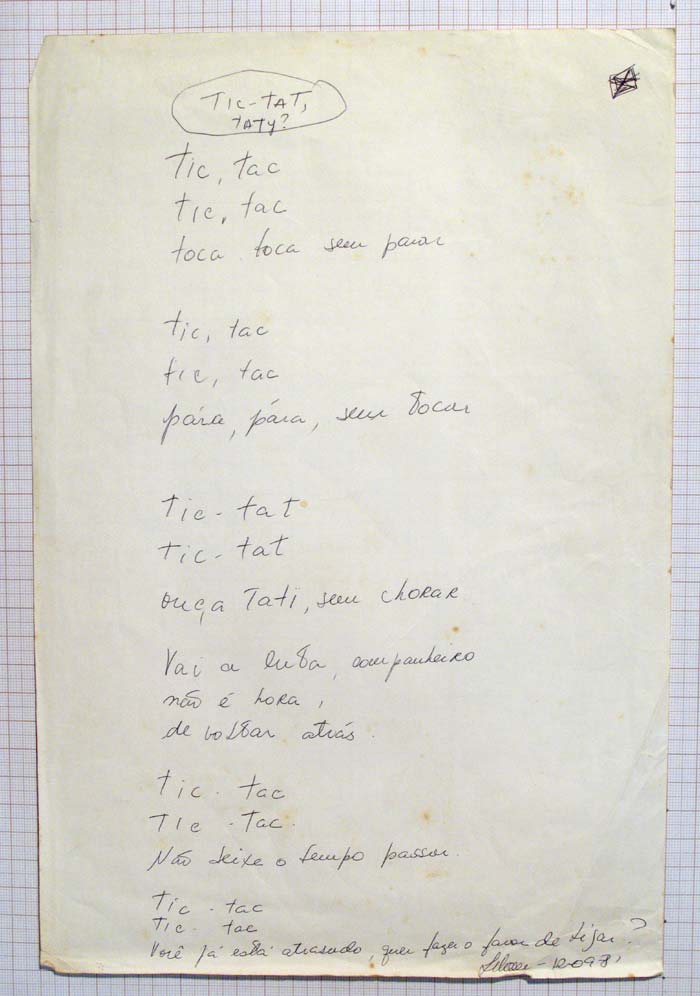 TIC-TAT,
TATY?
Tic, tac
tic, tac
toca toca sem parar
tic, tac
tic, tac
pára, pára, sem tocar
tic - tat
tic - tat
ouça Tati, sem chorar
Vai a luta, companheiro
não é hora,
de voltar atrás.
tic - tac
TIC - Tac.
Não deixe o tempo passar.
Tic - tac
Tic - tac
Você já está atrasado, quer fazer o favor de ligar?